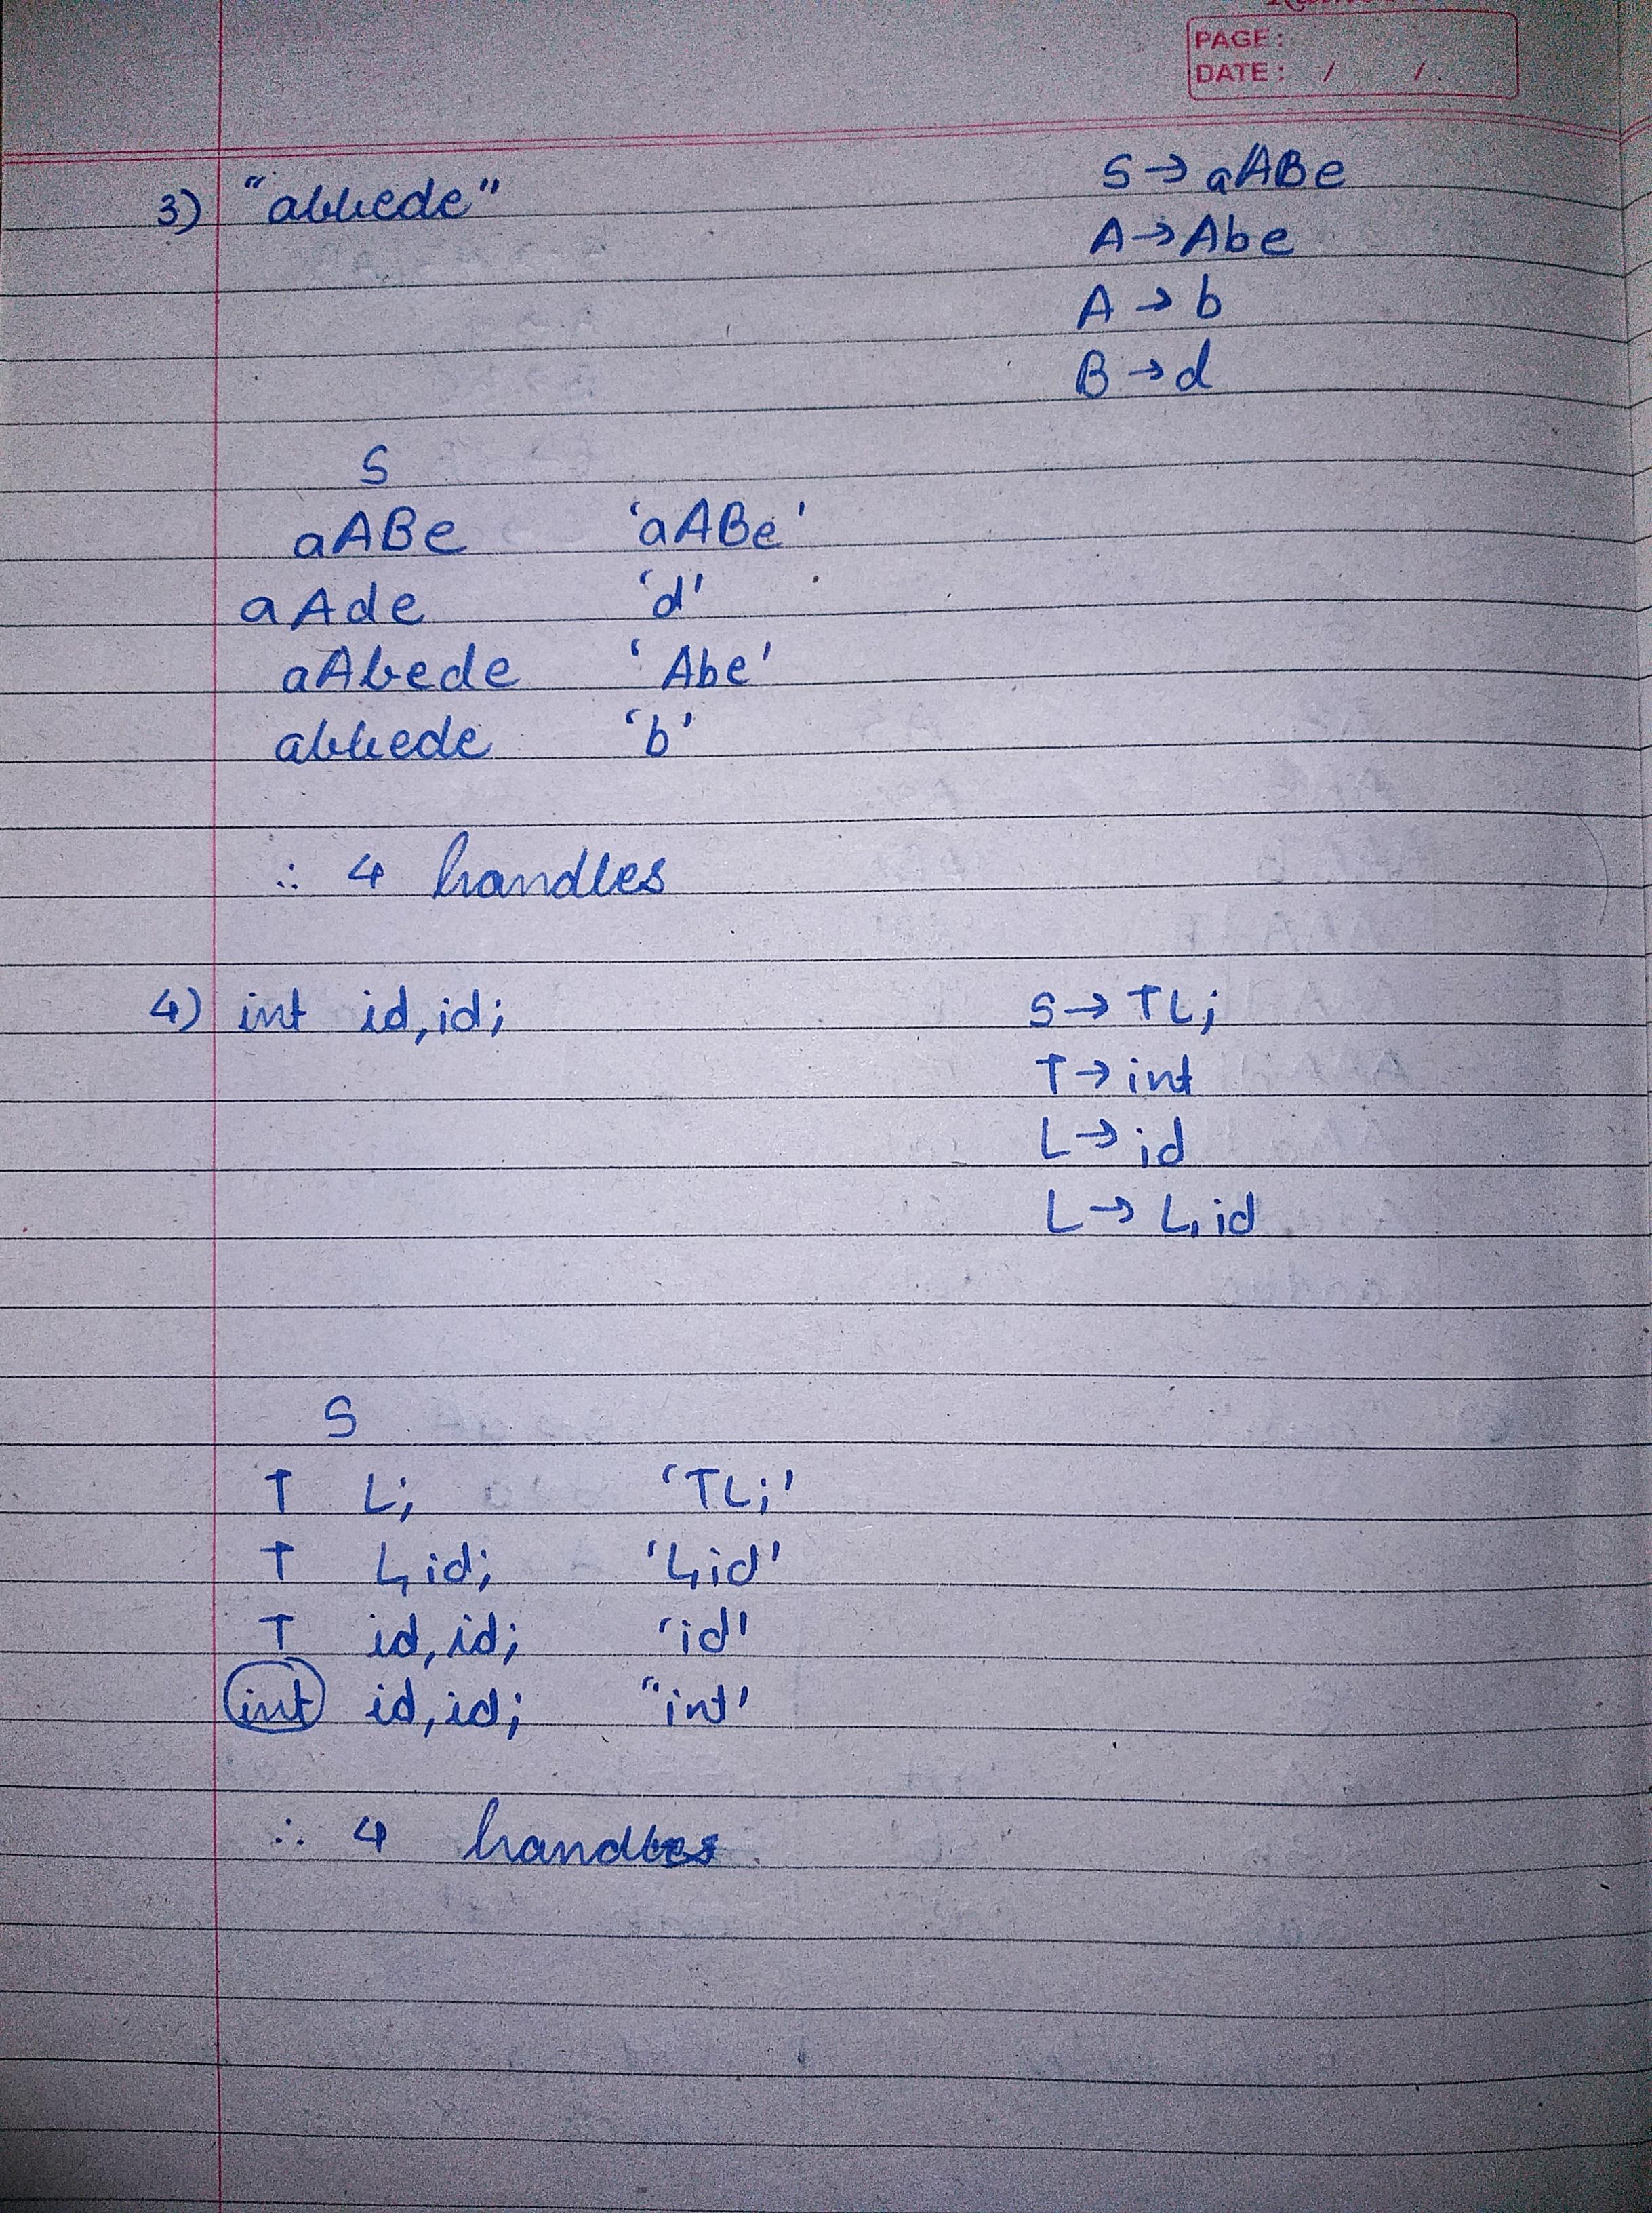 PAGE:
DATE: / /
3) "abbede" S → aABe
A → Abe
A → b
B → d
S
aABe 'aABe'
aAde 'd'
aAbede 'Abe'
abbede 'b'
∴ 4 handles
4) int id,id; S → TL;
T → int
L → id
L → L,id
S
T L; 'TL;'
T L,id; 'L,id'
T id,id; 'id'
int id,id; "int'
∴ 4 handles